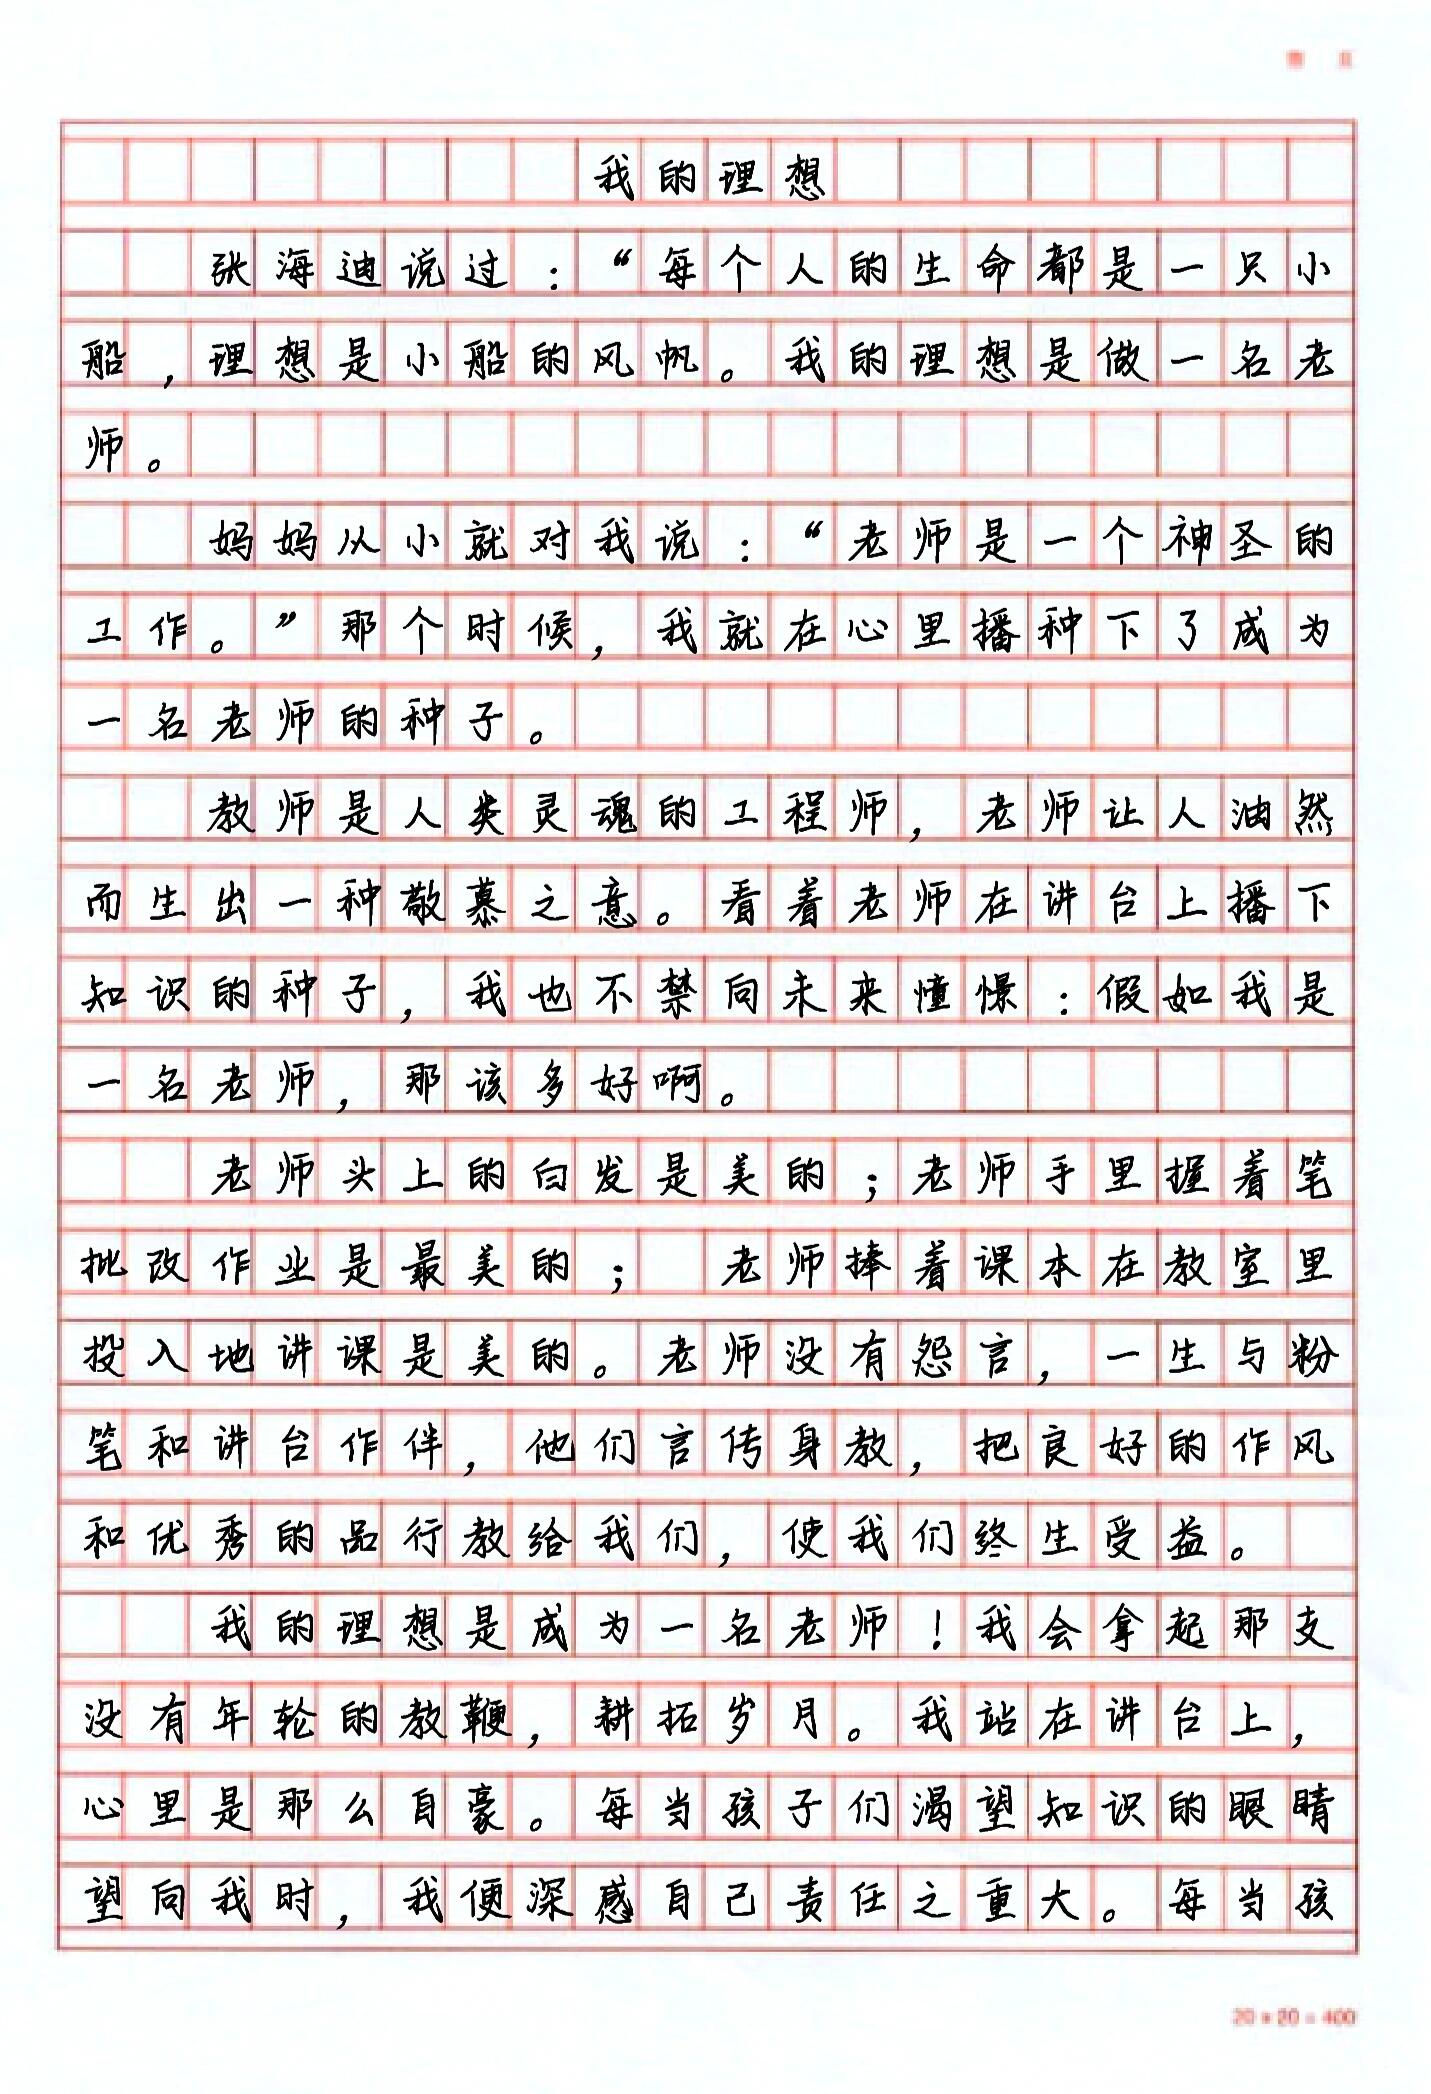 我的理想
张海迪说过：“每个人的生命都是一只小
船，理想是小船的风帆。我的理想是做一名老
师。
妈妈从小就对我说：“老师是一个神圣的
工作。”那个时候，我就在心里播种下了成为
一名老师的种子。
教师是人类灵魂的工程师，老师让人油然
而生出一种敬慕之意。看着老师在讲台上播下
知识的种子，我也不禁向未来憧憬：假如我是
一名老师，那该多好啊。
老师头上的白发是美的；老师手里握着笔
批改作业是最美的；老师捧着课本在教室里
投入地讲课是美的。老师没有怨言，一生与粉
笔和讲台作伴，他们言传身教，把良好的作风
和优秀的品行教给我们，使我们终生受益。
我的理想是成为一名老师！我会拿起那支
没有年轮的教鞭，耕拓岁月。我站在讲台上，
心里是那么自豪。每当孩子们渴望知识的眼睛
望向我时，我便深感自己责任之重大。每当孩
20×20=400